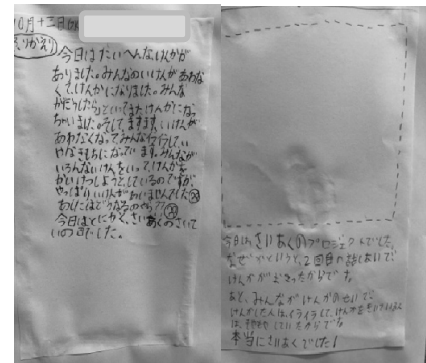 10月十二日(火)
ふりかえり
今日はたいへんないけんが
ありました。みんなのいけんがあわな
くて、けんかになりました。みんな
「かだったら」といってまたけんかになっ
ちゃいました。そして、ますます、いけんが
あわなくなってみんなイライラして
いやなきもちになっています。みんなが
いろんないけんをいって、けんかを
かいけつしようとしているのですが、
やっぱりいけんがあいませんでした
わたしはどうなるのやら??
今日はとにかく、さいあくのさいて
いの日でした。
今日は、さいあくのプロジェクトでした。
なぜかというと、2回目の話しあいで
けんかがおきったからです。
あと、みんながけんかのせいで、
けんかした人は、イライラして、けんかを
は、していたからです。
本当にさいあくでした!